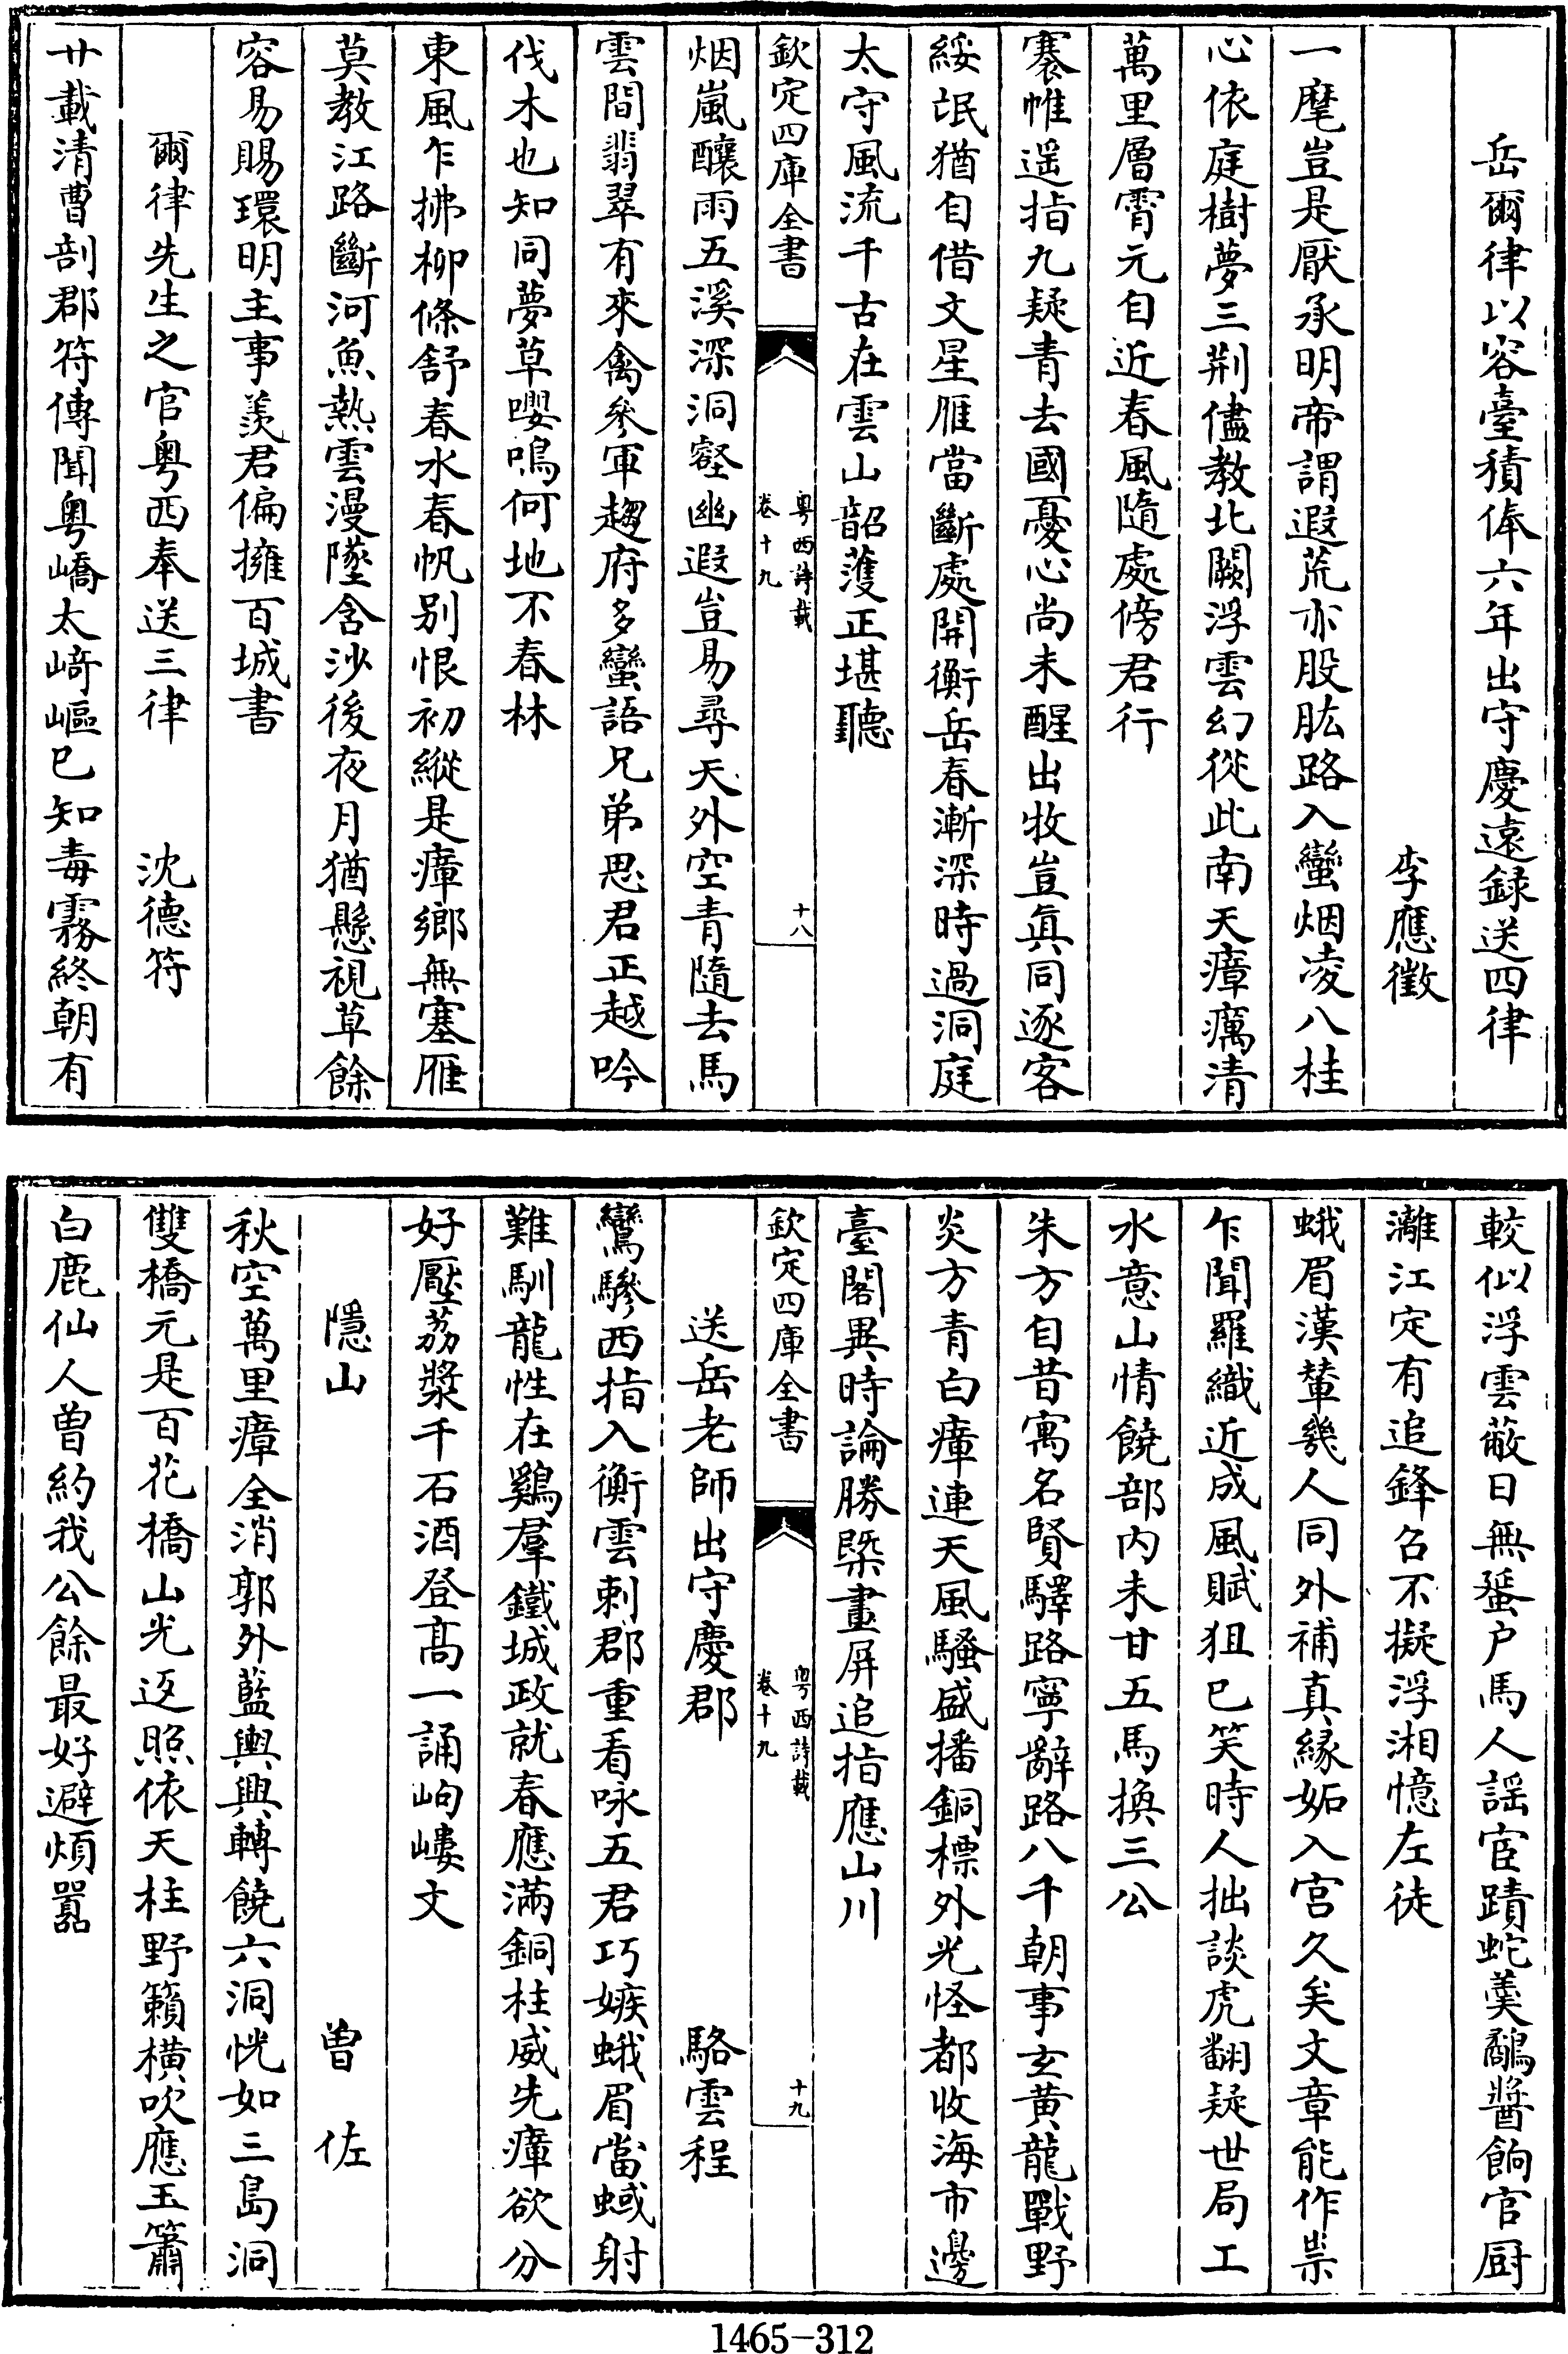 岳爾律以容臺積俸六年出守慶遠録送四律
李應徵
一麾豈是厭承明帝謂遐荒亦股肱路入蠻烟凌八桂
心依庭樹夢三荆儘教北闕浮雲幻從此南天瘴癘清
萬里層霄元自近春風隨處傍君行
褰帷遥指九疑青去國憂心尚未醒出牧豈真同逐客
綏氓猶自借文星雁當斷處開衡岳春漸深時過洞庭
太守風流千古在雲山韶頀正堪聽
欽定四庫全書
粤西詩載
卷十九
十八
烟嵐釀雨五溪深洞壑幽遐豈易尋天外空青隨去馬
雲間翡翠有來禽參軍趨府多蠻語兄弟思君正越吟
伐木也知同夢草嚶鳴何地不春林
東風乍拂柳條舒春水春帆别恨初縱是瘴鄉無塞雁
莫教江路斷河魚熱雲漫墜含沙後夜月猶懸視草餘
容易賜環明主事羨君偏擁百城書
爾律先生之官粤西奉送三律
沈德符
廿載清曹剖郡符傳聞粤嶠太﨑嶇已知毒霧終朝有
較似浮雲蔽日無蜑户馬人謡宦蹟蛇羮鷸醬餉官厨
灕江定有追鋒召不擬浮湘憶左徒
蛾眉漢輦幾人同外補真緣妬入宫久矣文章能作祟
乍聞羅織近成風賦狙已笑時人拙談虎翻疑世局工
水意山情饒部内未甘五馬換三公
朱方自昔寓名賢驛路寧辭路八千朝事玄黄龍戰野
炎方青白瘴連天風騷盛播銅標外光怪都收海市邊
臺閣異時論勝槩畫屏追指應山川
欽定四庫全書
粤西詩載
卷十九
十九
送岳老師出守慶郡
駱雲程
鸞驂西指入衡雲剌郡重看咏五君巧嫉蛾眉當蜮射
難馴龍性在鷄羣鐵城政就春應滿銅柱威先瘴欲分
好壓荔漿千石酒登高一誦岣嶁文
隱山
曾佐
秋空萬里瘴全消郭外藍輿興轉饒六洞恍如三島洞
雙橋元是百花橋山光返照依天柱野籟橫吹應玉簫
白鹿仙人曾約我公餘最好避煩囂
1465-312